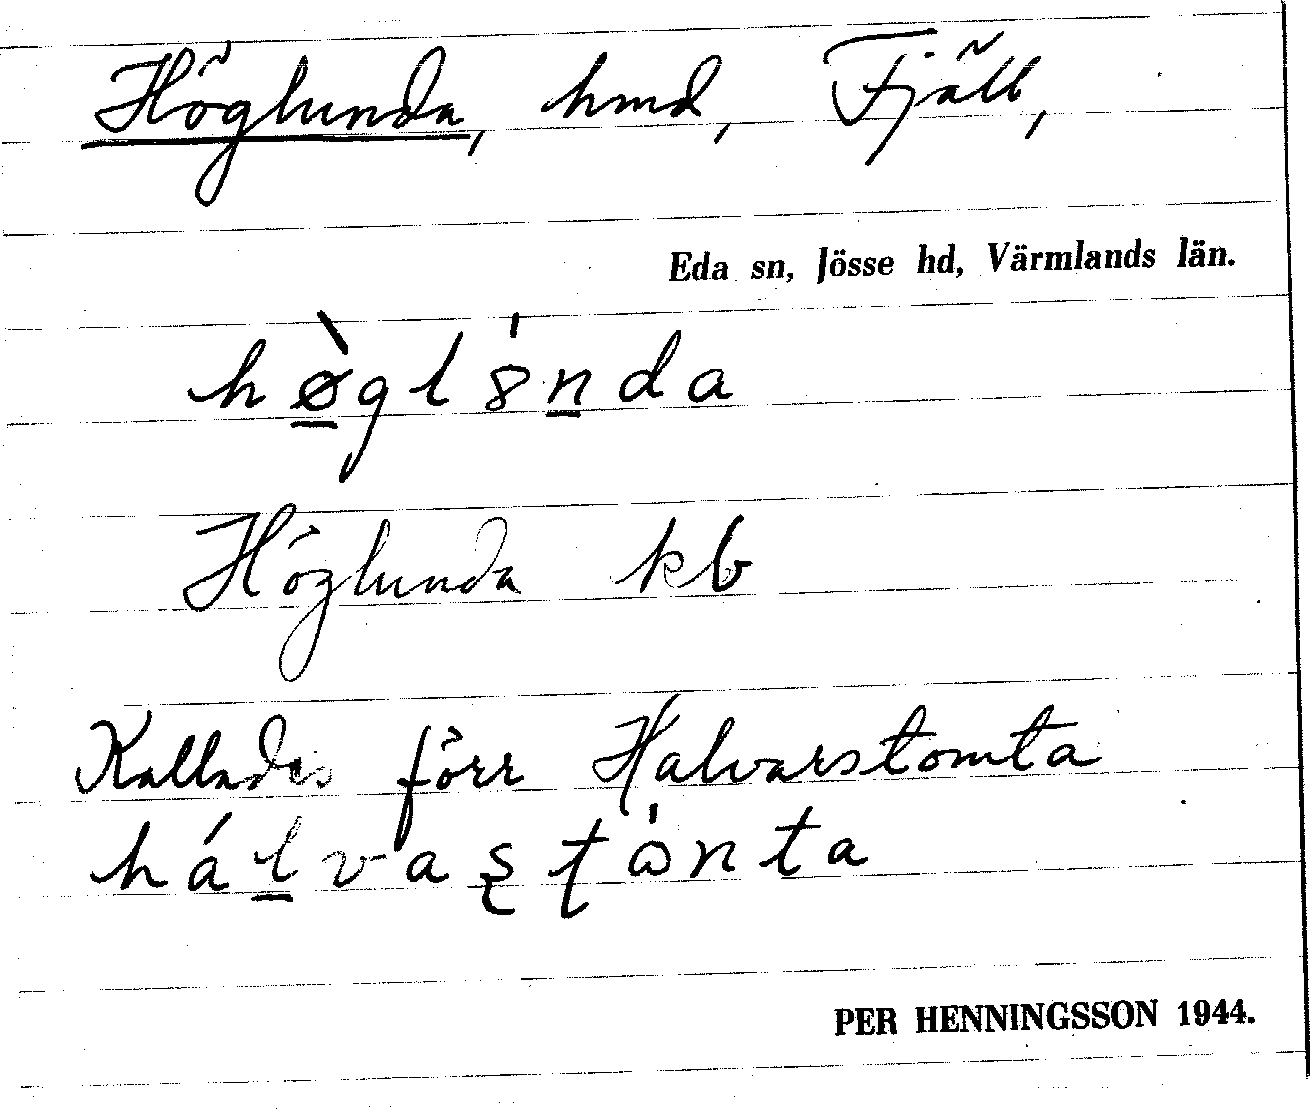 Höglunda, hmd, Fjäll,
Eda sn, Jösse hd, Värmlands län.
hø̱̀gl8̍ṉda
Höglunda kb
Kallades förr Halvarstomta
háḻvaʂʈɷ̍nta
PER HENNINGSSON 1944.